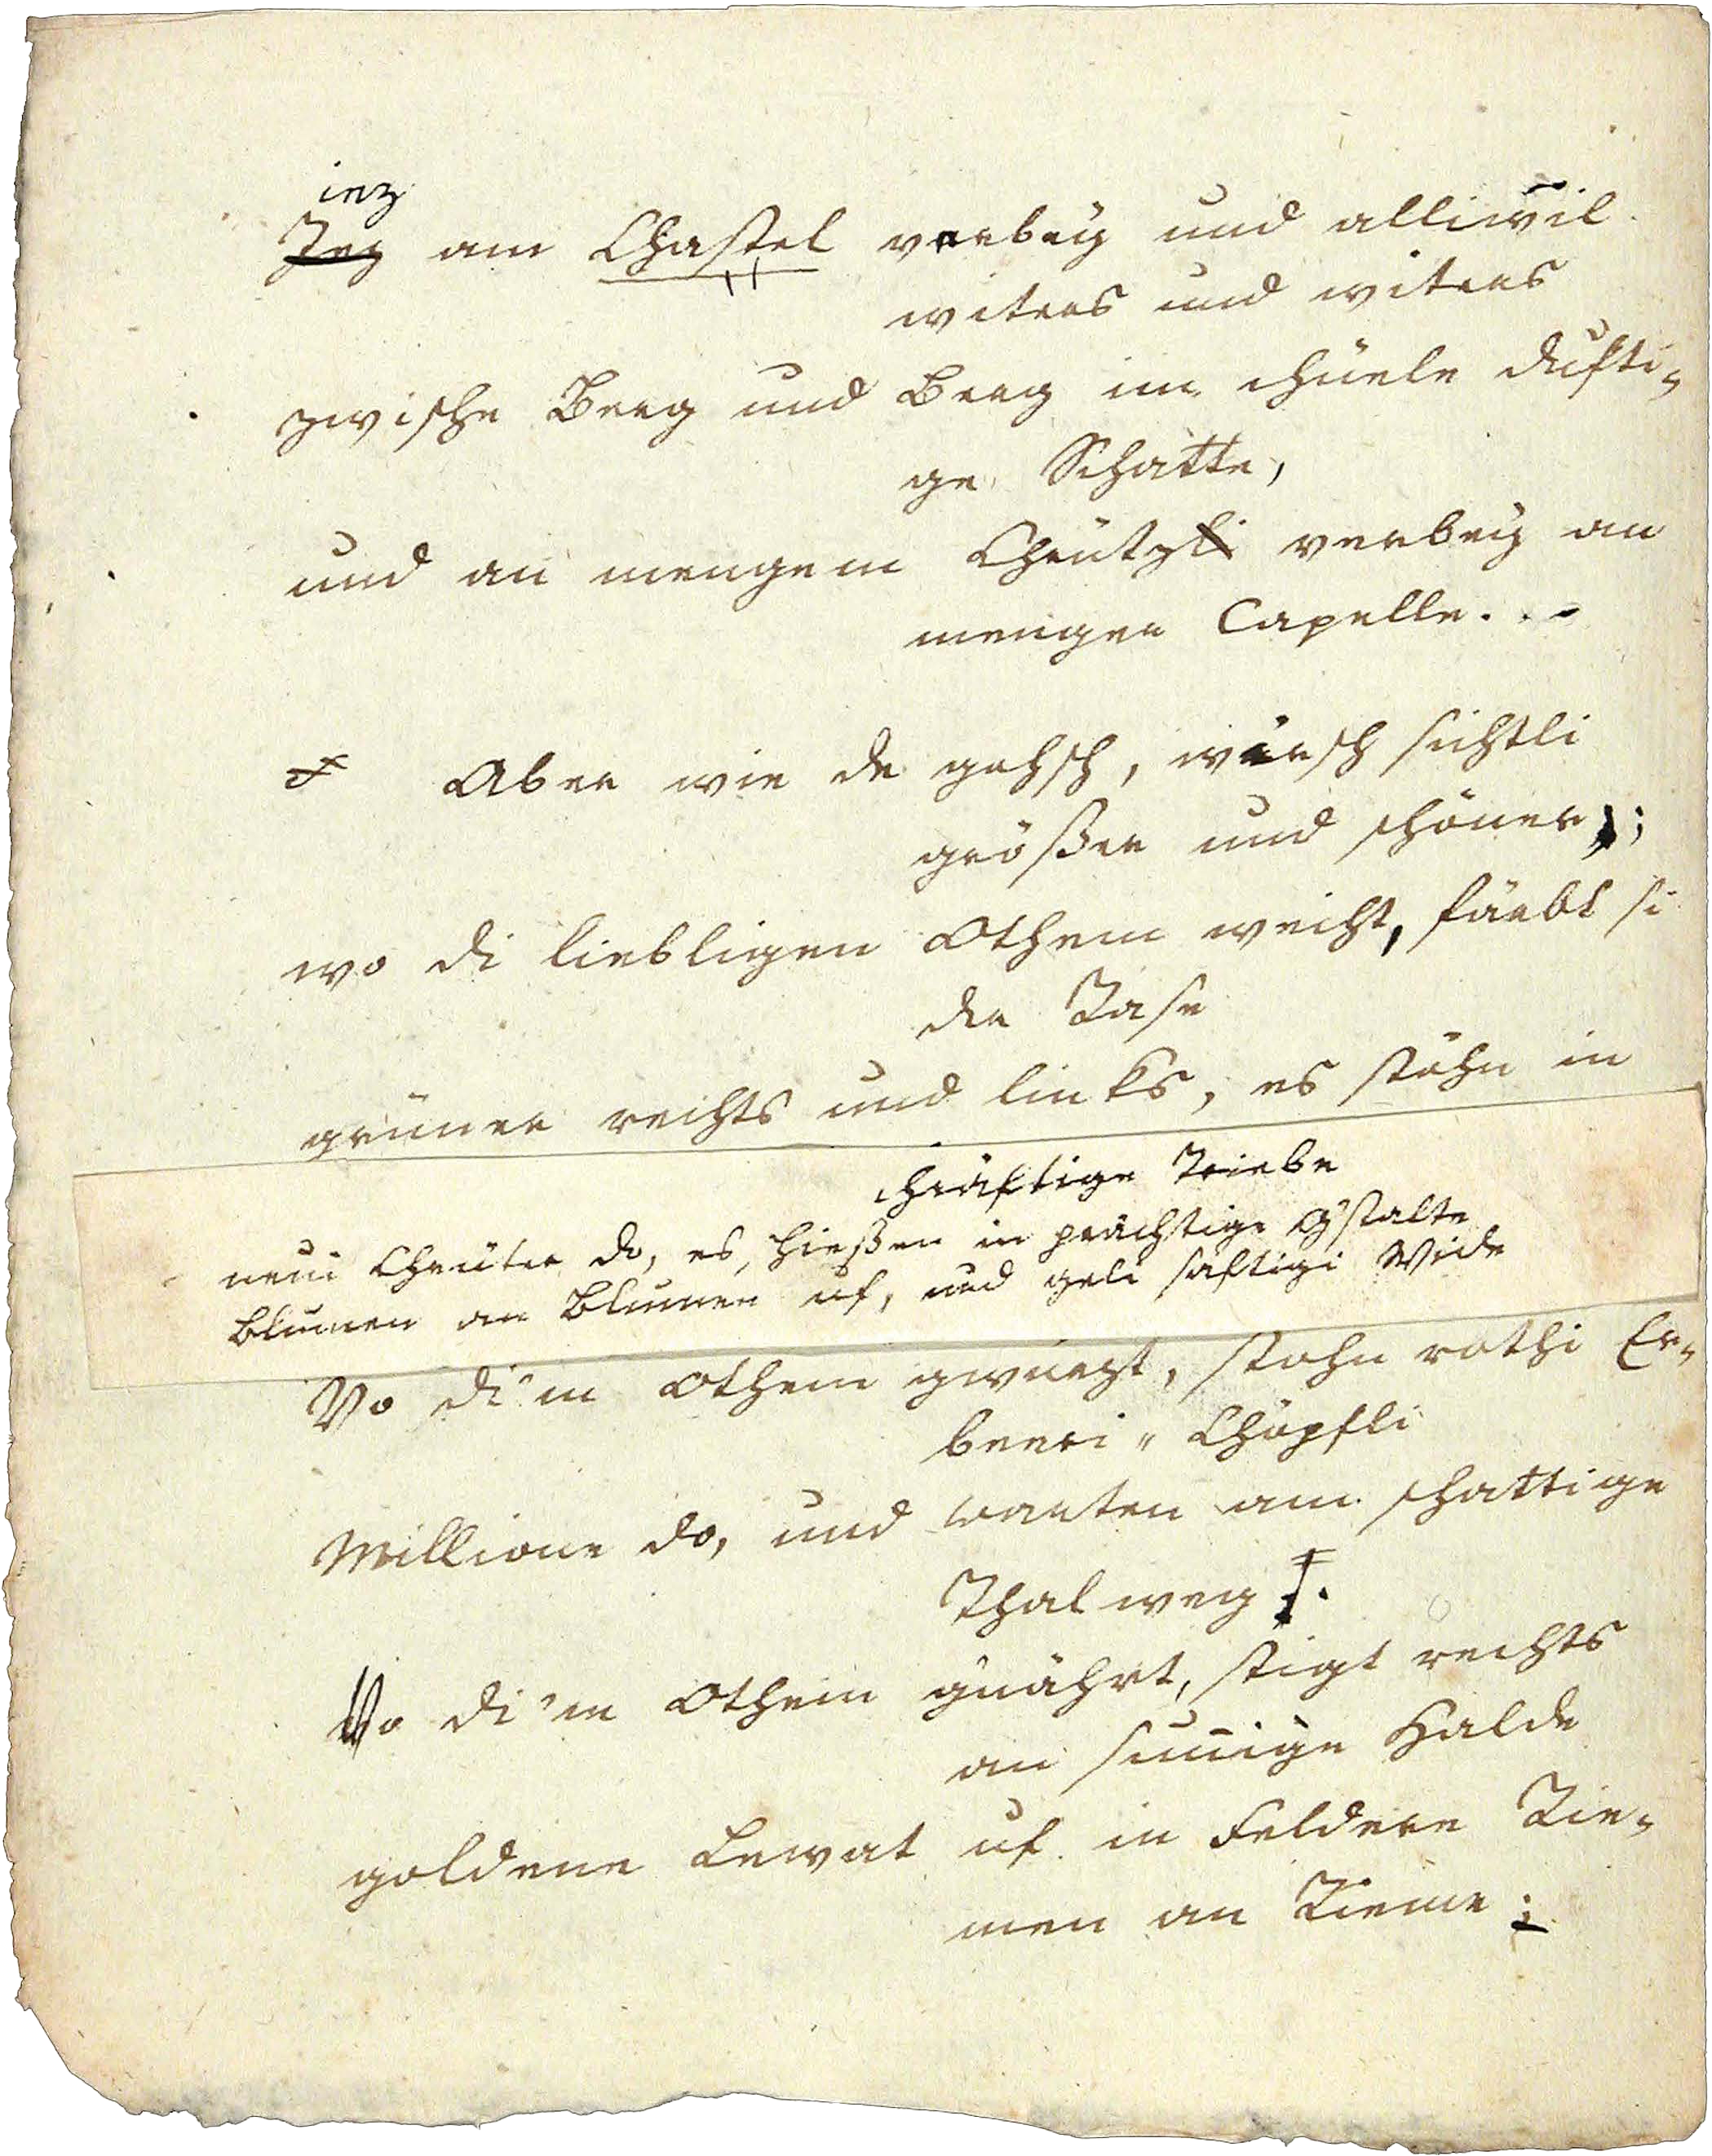 iez
Jez am Chastel verbey und alliwil
witers und witers
zwische Berg und Berg im chüele dufti-
ge Schatte,
und an mengem Chrützli verbey an
menger Capelle. . -
Aber wie de gohsch, wirsch sichtli
größer und schöner;
wo di lieblige Othem weiht, färbt si
der Rase
grüner rechts und links, es stöhn in
chräftige Triebe
neui Chrüter do, es schießen in prächtige Gstalte
Blumen an Blumen uf, und geli saftigi Wide
Vo di'm Othem gwürzt, stohn rothi Er-
beeri-Chöpfli
Millione do, und warten am schattige
Thalweg.
Vo di'm Othem gnährt, stigt rechts
an sunnige Halde
goldene Lewat uf in Feldere Rie-
men an Rieme;